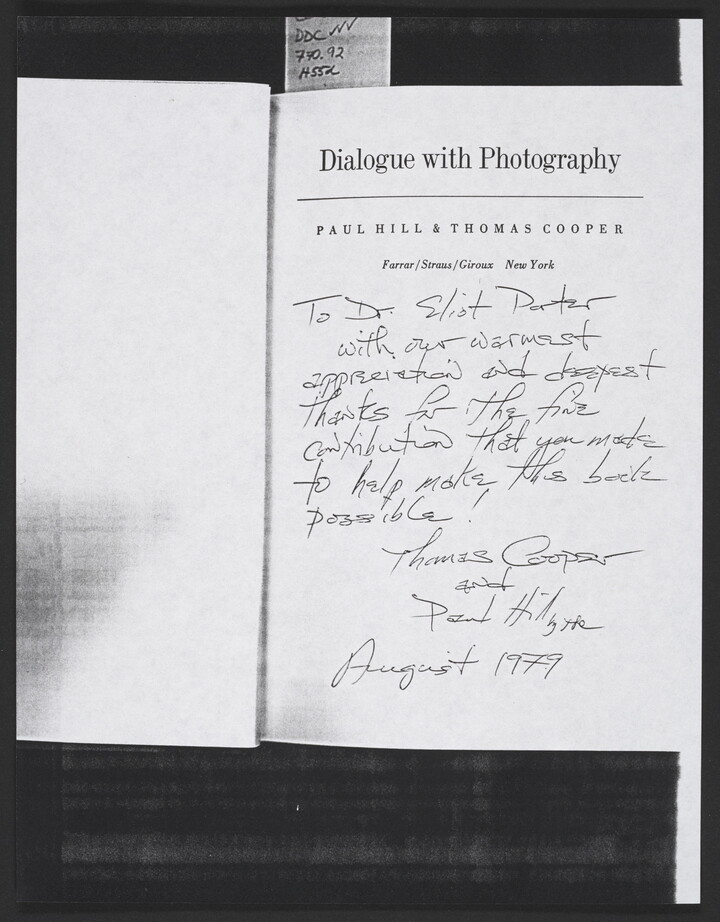 DDC NV
770.92
H55d
Dialogue with Photography
PAUL HILL & THOMAS COOPER
Farrar/Straus/Giroux New York
To Dr. Eliot Porter
with our warmest
appreciation and deepest
thanks for the fine
contribution that you made
to help make this book
possible!
Thomas Cooper
and
Paul Hill
August 1979